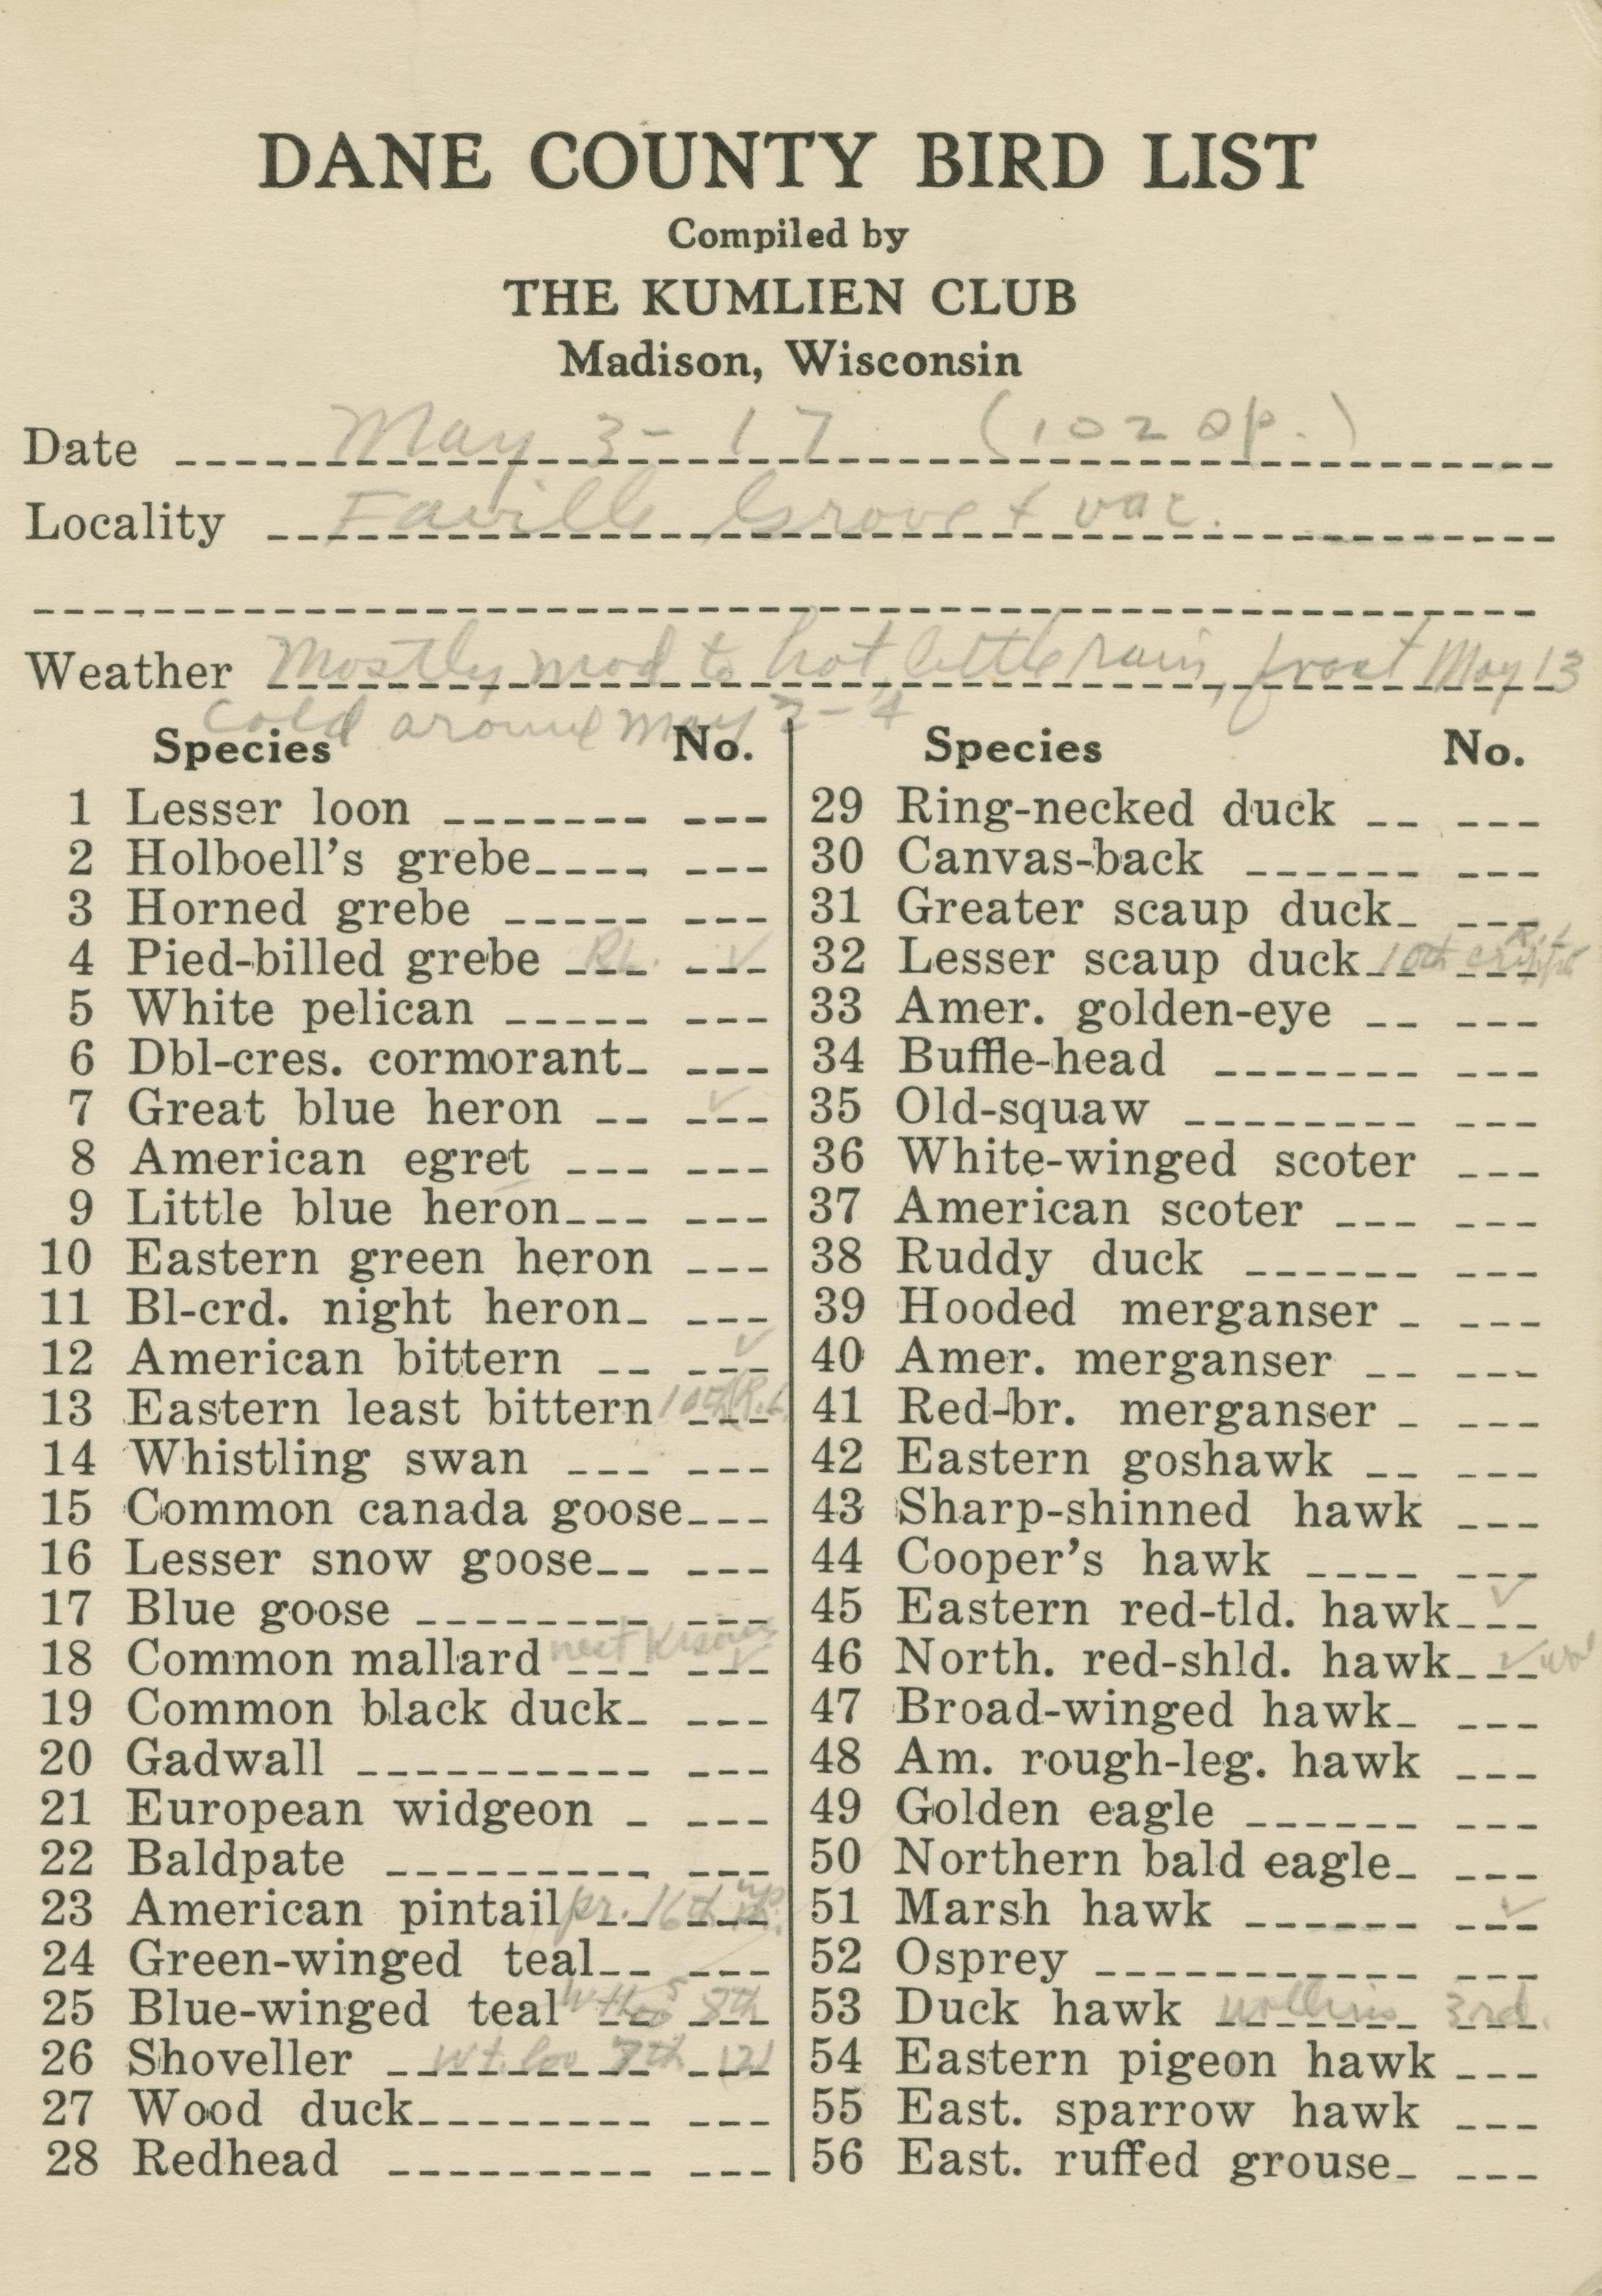 DANE COUNTY BIRD LIST
Compiled by
THE KUMLIEN CLUB
Madison, Wisconsin
Date May 3-17 (102 sp.)
Locality Faville Grove + vac.
Weather Mostly mod to hot, little rain, frost May 13
cold around May 2-4
Species No.
1 Lesser loon
2 Holboell's grebe
3 Horned grebe
4 Pied-billed grebe R.L. ✓
5 White pelican
6 Dbl-cres. cormorant
7 Great blue heron ✓
8 American egret
9 Little blue heron
10 Eastern green heron
11 Bl-crd. night heron
12 American bittern ✓
13 Eastern least bittern 10th (R.L.)
14 Whistling swan
15 Common canada goose
16 Lesser snow goose
17 Blue goose
18 Common mallard nest ✓
19 Common black duck
20 Gadwall
21 European widgeon
22 Baldpate
23 American pintail pr. 16th
24 Green-winged teal
25 Blue-winged teal 8th
26 Shoveller Wt. loo 7th (2)
27 Wood duck
28 Redhead
Species No.
29 Ring-necked duck
30 Canvas-back
31 Greater scaup duck
32 Lesser scaup duck 10th R.L. cripple
33 Amer. golden-eye
34 Buffle-head
35 Old-squaw
36 White-winged scoter
37 American scoter
38 Ruddy duck
39 Hooded merganser
40 Amer. merganser
41 Red-br. merganser
42 Eastern goshawk
43 Sharp-shinned hawk
44 Cooper's hawk
45 Eastern red-tld. hawk ✓
46 North. red-shld. hawk ✓
47 Broad-winged hawk
48 Am. rough-leg. hawk
49 Golden eagle
50 Northern bald eagle
51 Marsh hawk ✓
52 Osprey
53 Duck hawk 3rd.
54 Eastern pigeon hawk
55 East. sparrow hawk
56 East. ruffed grouse